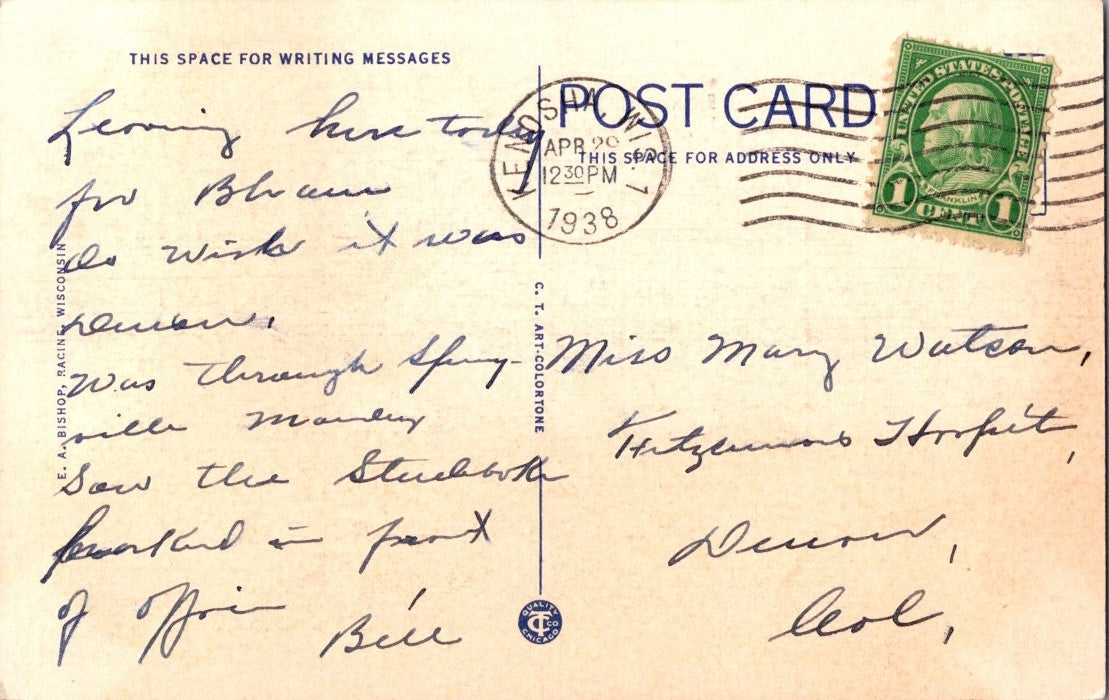 THIS SPACE FOR WRITING MESSAGES
Leaving here today
for
do wish it was
Denver.
Was through Spring-
ville Monday
Saw the Studebaker
parked in front
of office
Bill
E. A. BISHOP, RACINE, WISCONSIN
C. T. ART-COLORTONE
QUALITY CTCO CHICAGO
POST CARD
THIS SPACE FOR ADDRESS ONLY
KENOSHA, WIS. 1
APR 29
12 30 PM
1938
UNITED STATES POSTAGE
FRANKLIN
1 CENT 1
Miss Mary Watson,
Fitzsimons Hospit,
Denver,
Col,